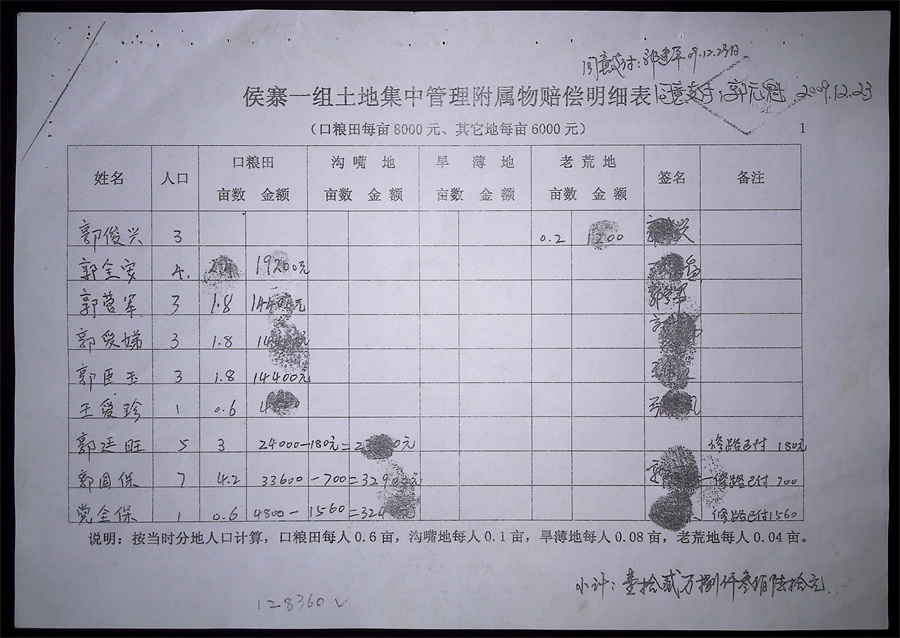 同意支付:郭建军 09.12.23日
侯寨一组土地集中管理附属物赔偿明细表 同意支付:郭元魁 2009.12.23
(口粮田每亩8000元、其它地每亩6000元) 1
姓名 人口 口粮田 沟嘴地 旱薄地 老荒地 签名 备注
亩数 金额 亩数 金额 亩数 金额 亩数 金额
郭俊兴 3 0.2 1200
郭全安 4. 19200元
郭营军 3 1.8 14400元
郭爱娣 3 1.8
郭臣玉 3 1.8 14400元
王爱珍 1 0.6
郭廷旺 5 3 24000-180元= 修路已付 180元
郭国保 7 4.2 33600-700=32900元 修路已付 700
党全保 1 0.6 4800-1560= 修路已付1560
说明:按当时分地人口计算,口粮田每人0.6亩,沟嘴地每人0.1亩,旱薄地每人0.08亩,老荒地每人0.04亩。
小计:壹拾贰万捌仟叁佰陆拾元
128360 √